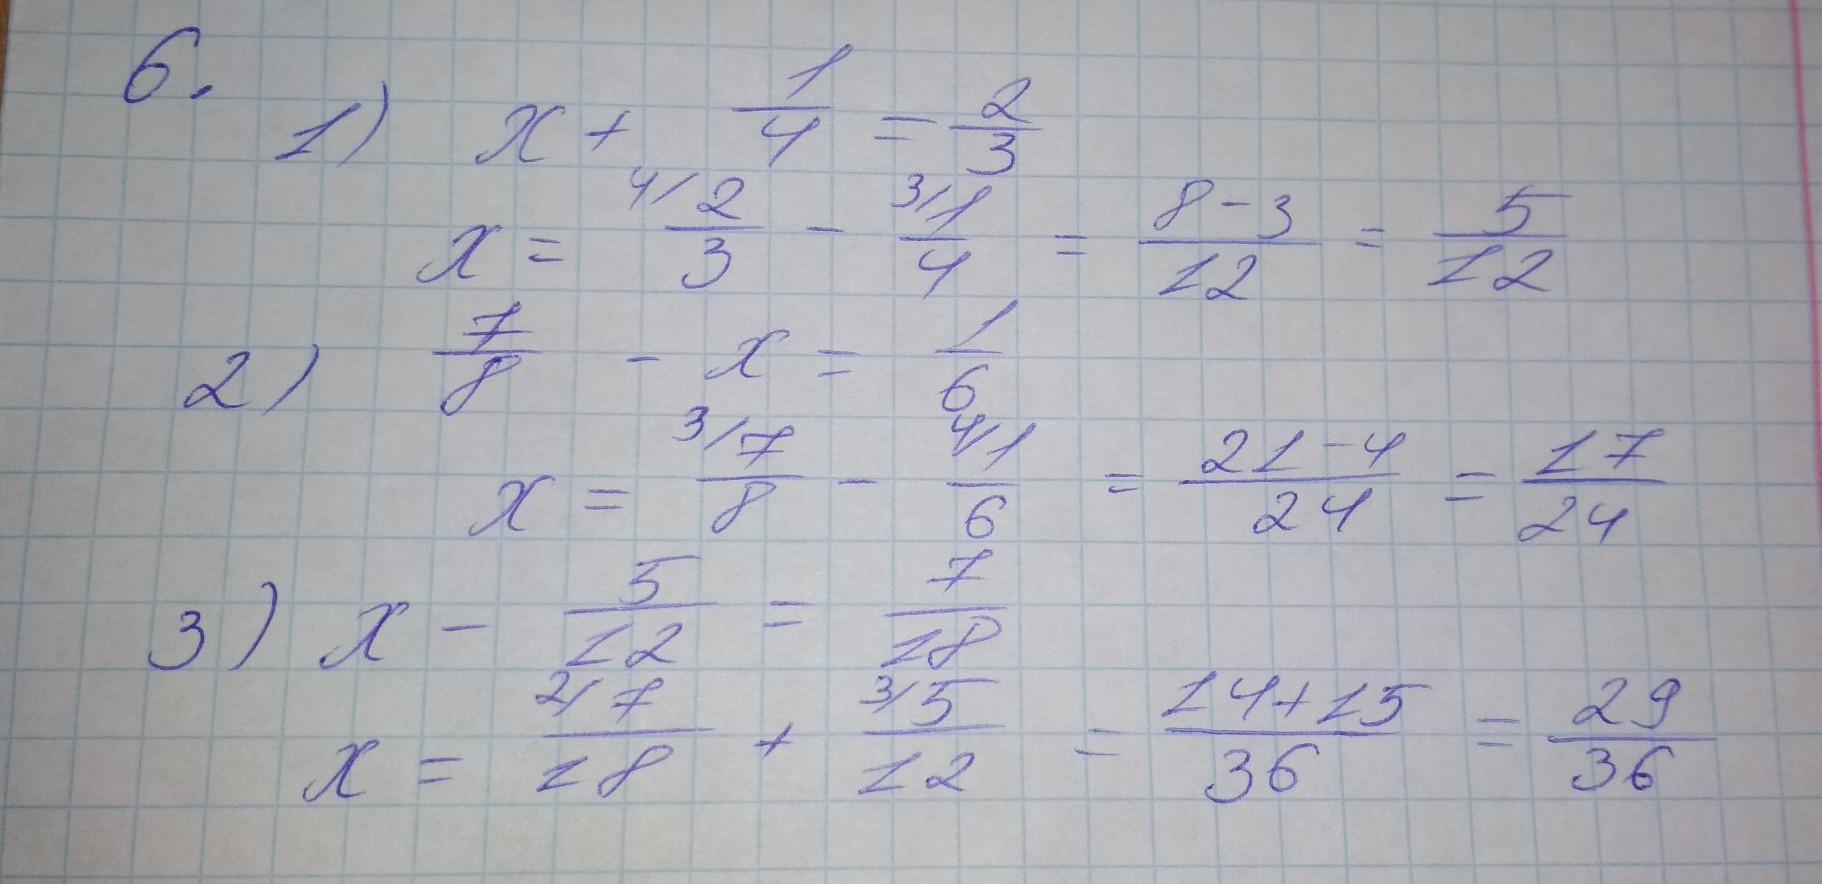 6.
1) x + 1/4 = 2/3
x = 4/ 2/3 - 3/ 1/4 = 8-3/12 = 5/12
2) 7/8 - x = 1/6
x = 3/ 7/8 - 4/ 1/6 = 21-4/24 = 17/24
3) x - 5/12 = 7/18
x = 2/ 7/18 + 3/ 5/12 = 14+15/36 = 29/36